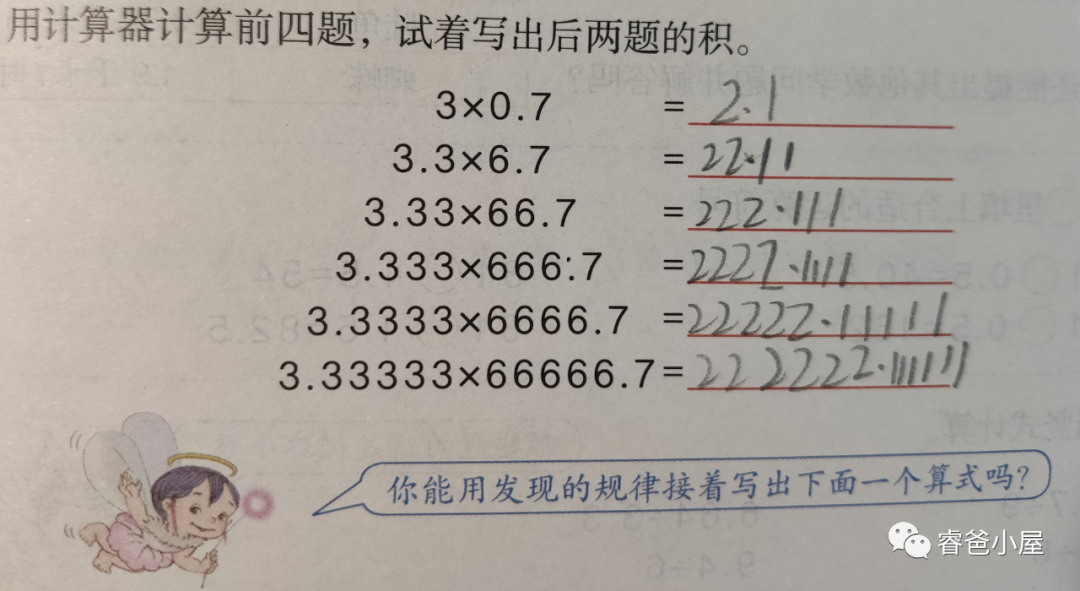 用计算器计算前四题，试着写出后两题的积。
3×0.7 = 2.1
3.3×6.7 = 22.11
3.33×66.7 = 222.111
3.333×666.7 = 2222.1111
3.3333×6666.7 = 22222.11111
3.33333×66666.7 = 222222.111111
你能用发现的规律接着写出下面一个算式吗？
睿爸小屋